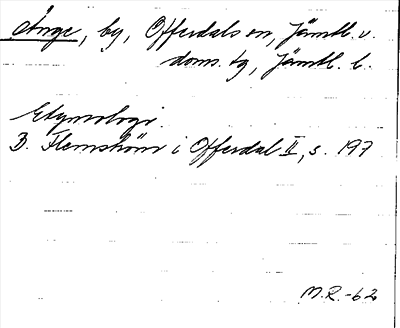 Änge, by, Offerdals sn, Jämtl. v.
doms. tg, Jämtl. l.
Etymologi.
B. Flemström i Offerdal II, s. 197
M.R.-62